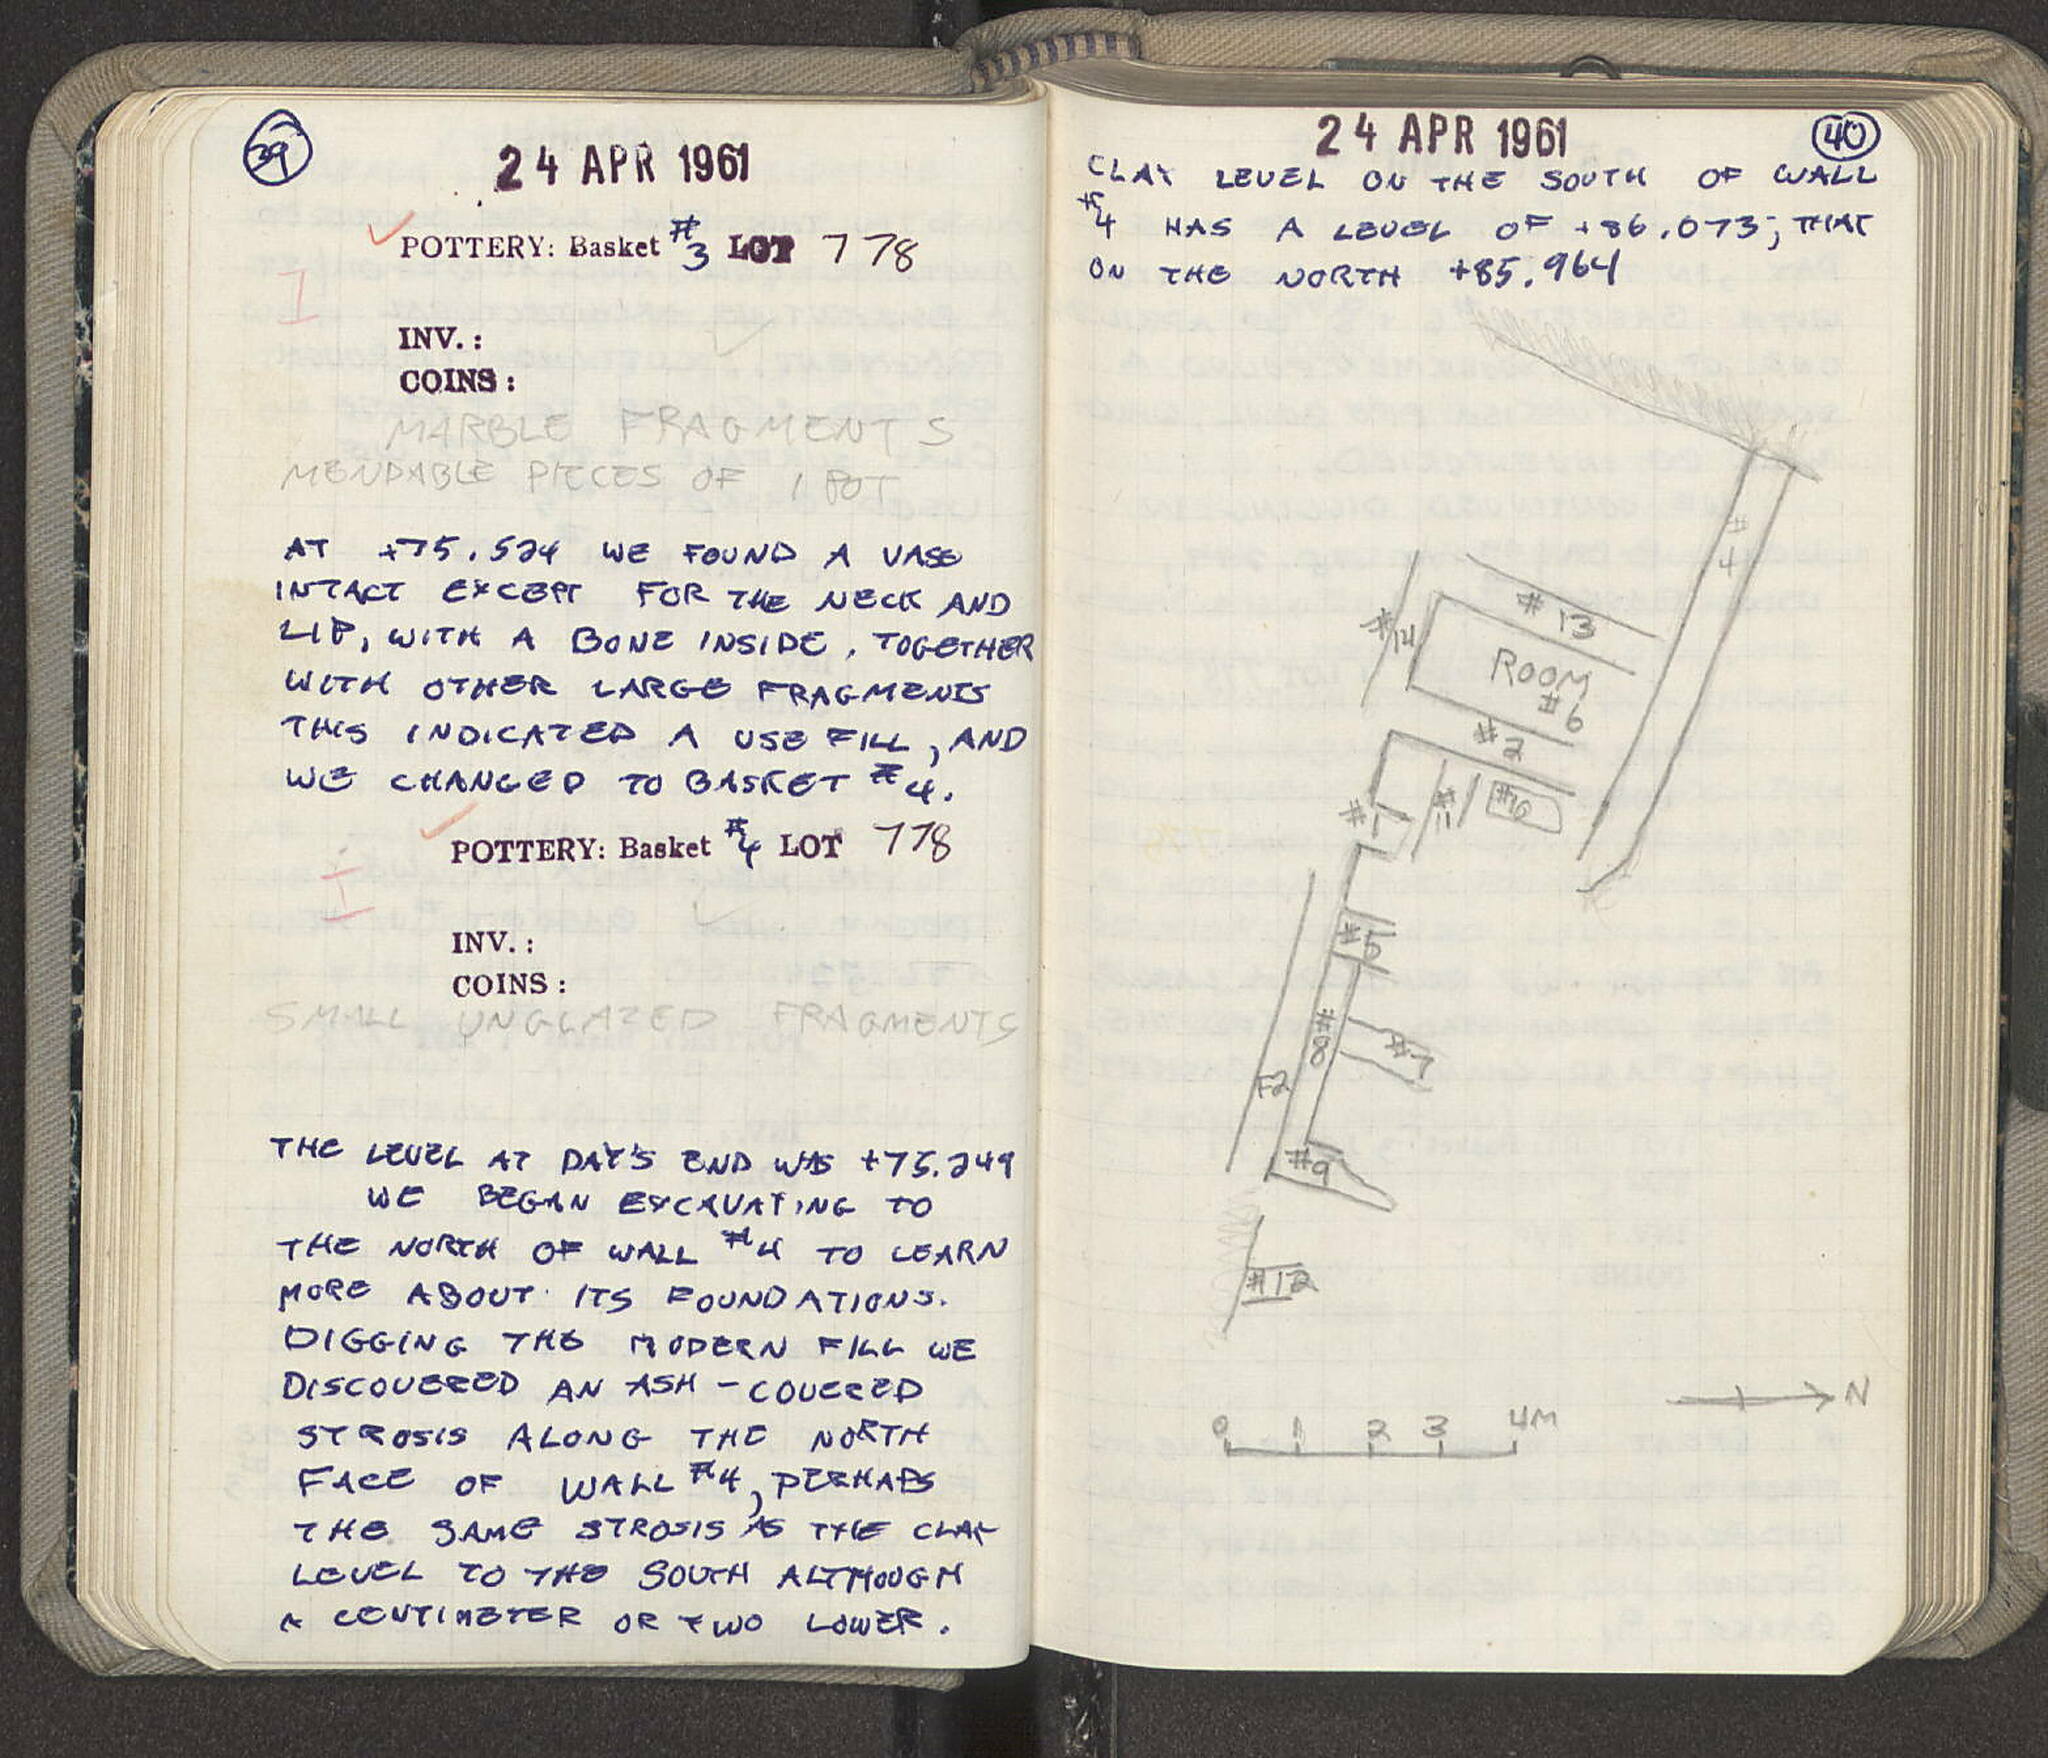 39
24 APR 1961
POTTERY: Basket #3 LOT 778
INV.:
COINS:
MARBLE FRAGMENTS
MENDABLE PIECES OF 1 POT
AT +75.524 WE FOUND A VASE
INTACT EXCEPT FOR THE NECK AND
LIP, WITH A BONE INSIDE. TOGETHER
WITH OTHER LARGE FRAGMENTS
THIS INDICATED A USE FILL, AND
WE CHANGED TO BASKET #4.
POTTERY: Basket #4 LOT 778
INV.:
COINS:
SMALL UNGLAZED FRAGMENTS
THE LEVEL AT DAY'S END WAS +75.249
WE BEGAN EXCAVATING TO
THE NORTH OF WALL #4 TO LEARN
MORE ABOUT ITS FOUNDATIONS.
DIGGING THE MODERN FILL WE
DISCOVERED AN ASH-COVERED
STROSIS ALONG THE NORTH
FACE OF WALL #4, PERHAPS
THE SAME STROSIS AS THE CLAY
LEVEL TO THE SOUTH ALTHOUGH
A CENTIMETER OR TWO LOWER.
40
24 APR 1961
CLAY LEVEL ON THE SOUTH OF WALL
#4 HAS A LEVEL OF +86.073; THAT
ON THE NORTH +85.964
#4
#13
#14
ROOM
#6
#2
#1
#11
#6
#5
#8
#7
F2
#9
#12
N
0 1 2 3 4M